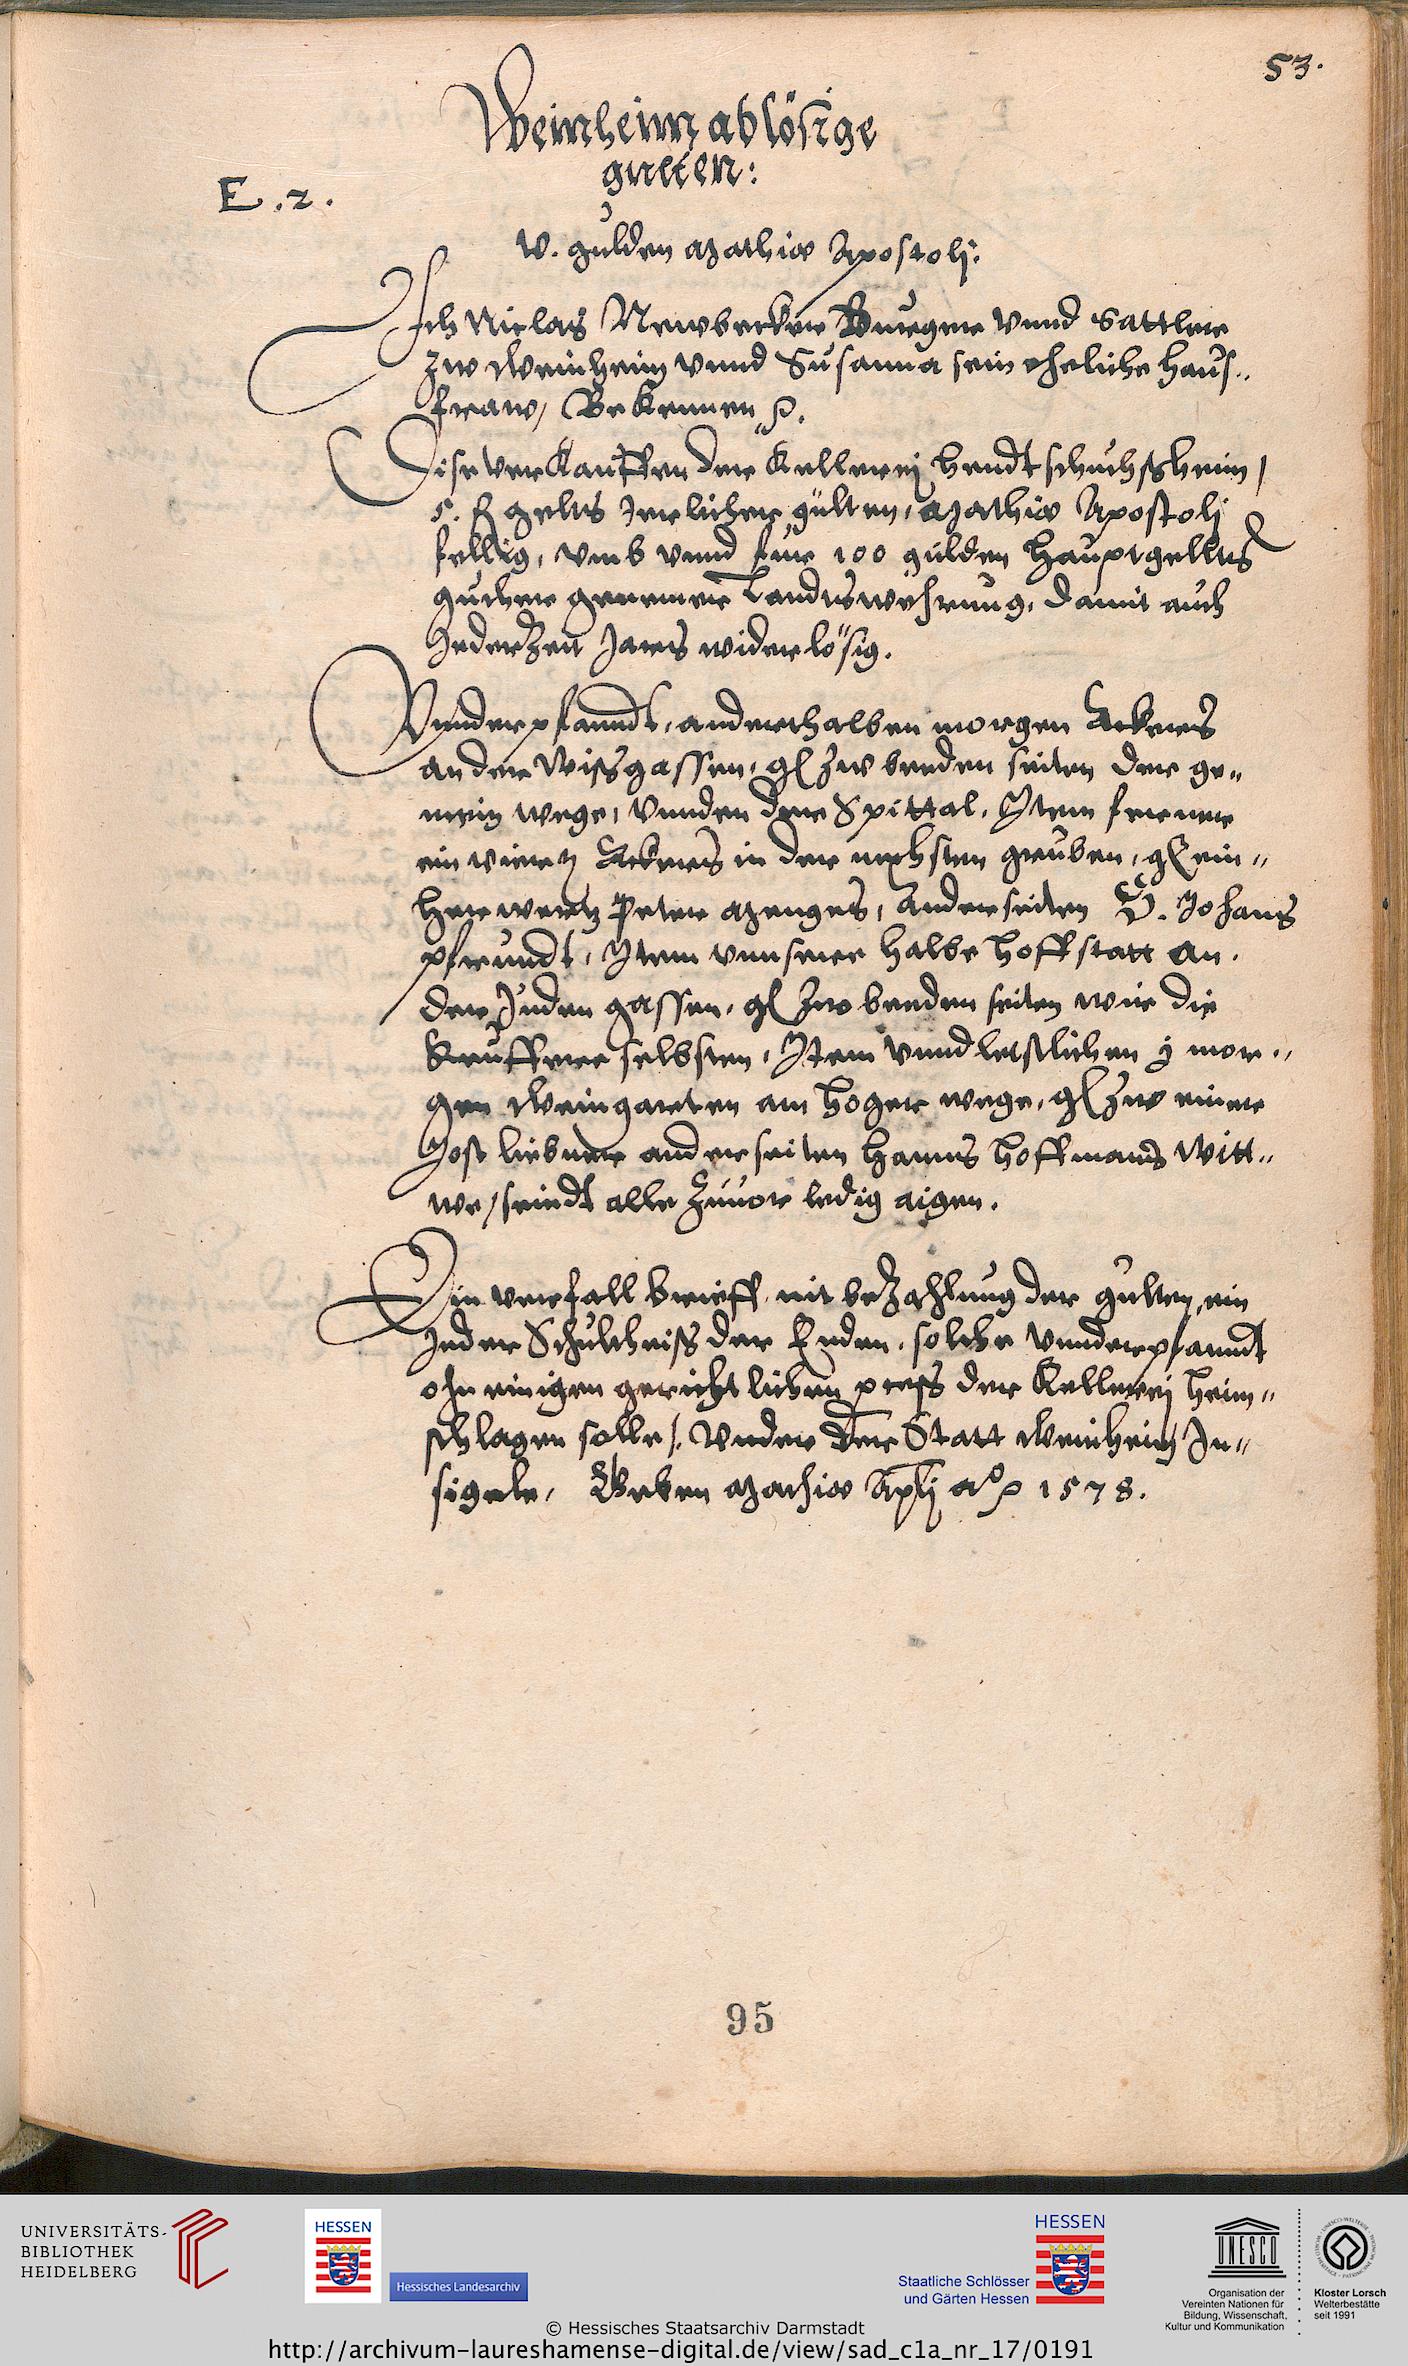 53.
Weinheim ablösige
gulten:
E. 2.
V. gulden Mathiae Apostolj:
Ich Niclas Newbecker Burger vnnd Sattler
zw Weinheim vnnd Susanna sein eheliche haus..
fraw, Bekennen
Dise verkauffen der Kellerej hendtschuchßheim,
5. fl gelts Jerlicher gülten, Mathiae Apostolj
fellig, vmb vnnd für 100 gulden hauptgelltß
guther genemer Landtswehrung, damit auch
Jederzeit Jares widerlösig.
Vnnderpfanndt, anderthalben morgen Ackers
an der Wißgassen, gl zw beeden seiten der ge"
mein wege, vnnden der Spittal, Jtem ferner
ein viertz Ackers in der nechsten gruben, gl ein"
herwertz Peter Menges, Anderseiten D. Johans
pfrundt, Jtem vnnser halbe hoffstatt an.
der Juden gassen, gl zw beeden seiten wir die
Keuffere selbsten, Jtem vnnd letstlichen j mor..
gen Weingarten am hoger wege, gl zw einer
Jost liebner anderseiten hanns hoffmans Witt..
we, seindt alle zuuor ledig aigen.
Ein verfall brieff, nit bezahlung der gulten, ein
Jeder Schultheiß der Enden, solche vnnderpfanndt
ohn einigen gerichtlichen proceß der Kellerej heim"
schlagen solle/. Vnder der Statt Weinheim Jn"
sigele, Geben Mathiae ApLj Ao 1578.
95
UNIVERSITÄTS-
BIBLIOTHEK
HEIDELBERG
HESSEN
Hessisches Landesarchiv
HESSEN
Staatliche Schlösser
und Gärten Hessen
UNESCO
Organisation der
Vereinten Nationen für
Bildung, Wissenschaft,
Kultur und Kommunikation
Kloster Lorsch
Welterbestätte
seit 1991
© Hessisches Staatsarchiv Darmstadt
http://archivum-laureshamense-digital.de/view/sad_c1a_nr_17/0191